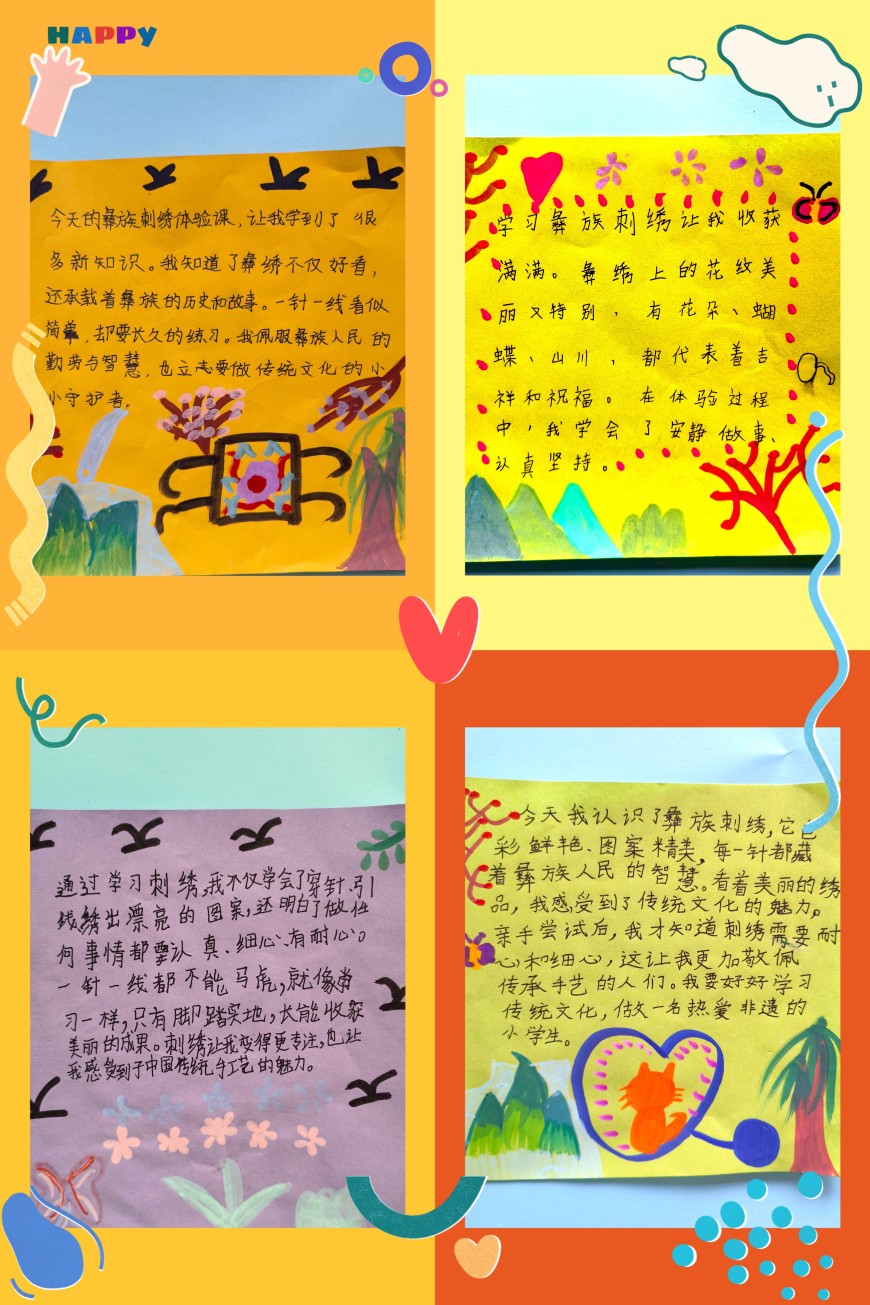 HAPPY
今天的彝族刺绣体验课，让我学到了很
多新知识。我知道了彝绣不仅好看，
还承载着彝族的历史和故事。一针一线看似
简单，却要长久的练习。我佩服彝族人民的
勤劳与智慧，也立志要做传统文化的小
小守护者。
学习彝族刺绣让我收获
满满。彝绣上的花纹美
丽又特别，有花朵、蝴
蝶、山川，都代表着吉
祥和祝福。在体验过程
中，我学会了安静做事、
认真坚持。
通过学习刺绣，我不仅学会了穿针、引
线，绣出漂亮的图案，还明白了做任
何事情都要认真、细心、有耐心。
一针一线都不能马虎，就像学
习一样，只有脚踏实地，才能收获
美丽的成果。刺绣让我变得更专注，也让
我感受到了中国传统手工艺的魅力。
今天我认识了彝族刺绣，它色
彩鲜艳、图案精美，每一针都藏
着彝族人民的智慧。看着美丽的绣
品，我感受到了传统文化的魅力。
亲手尝试后，我才知道刺绣需要耐
心和细心，这让我更加敬佩
传承手艺的人们。我要好好学习
传统文化，做一名热爱非遗的
小学生。